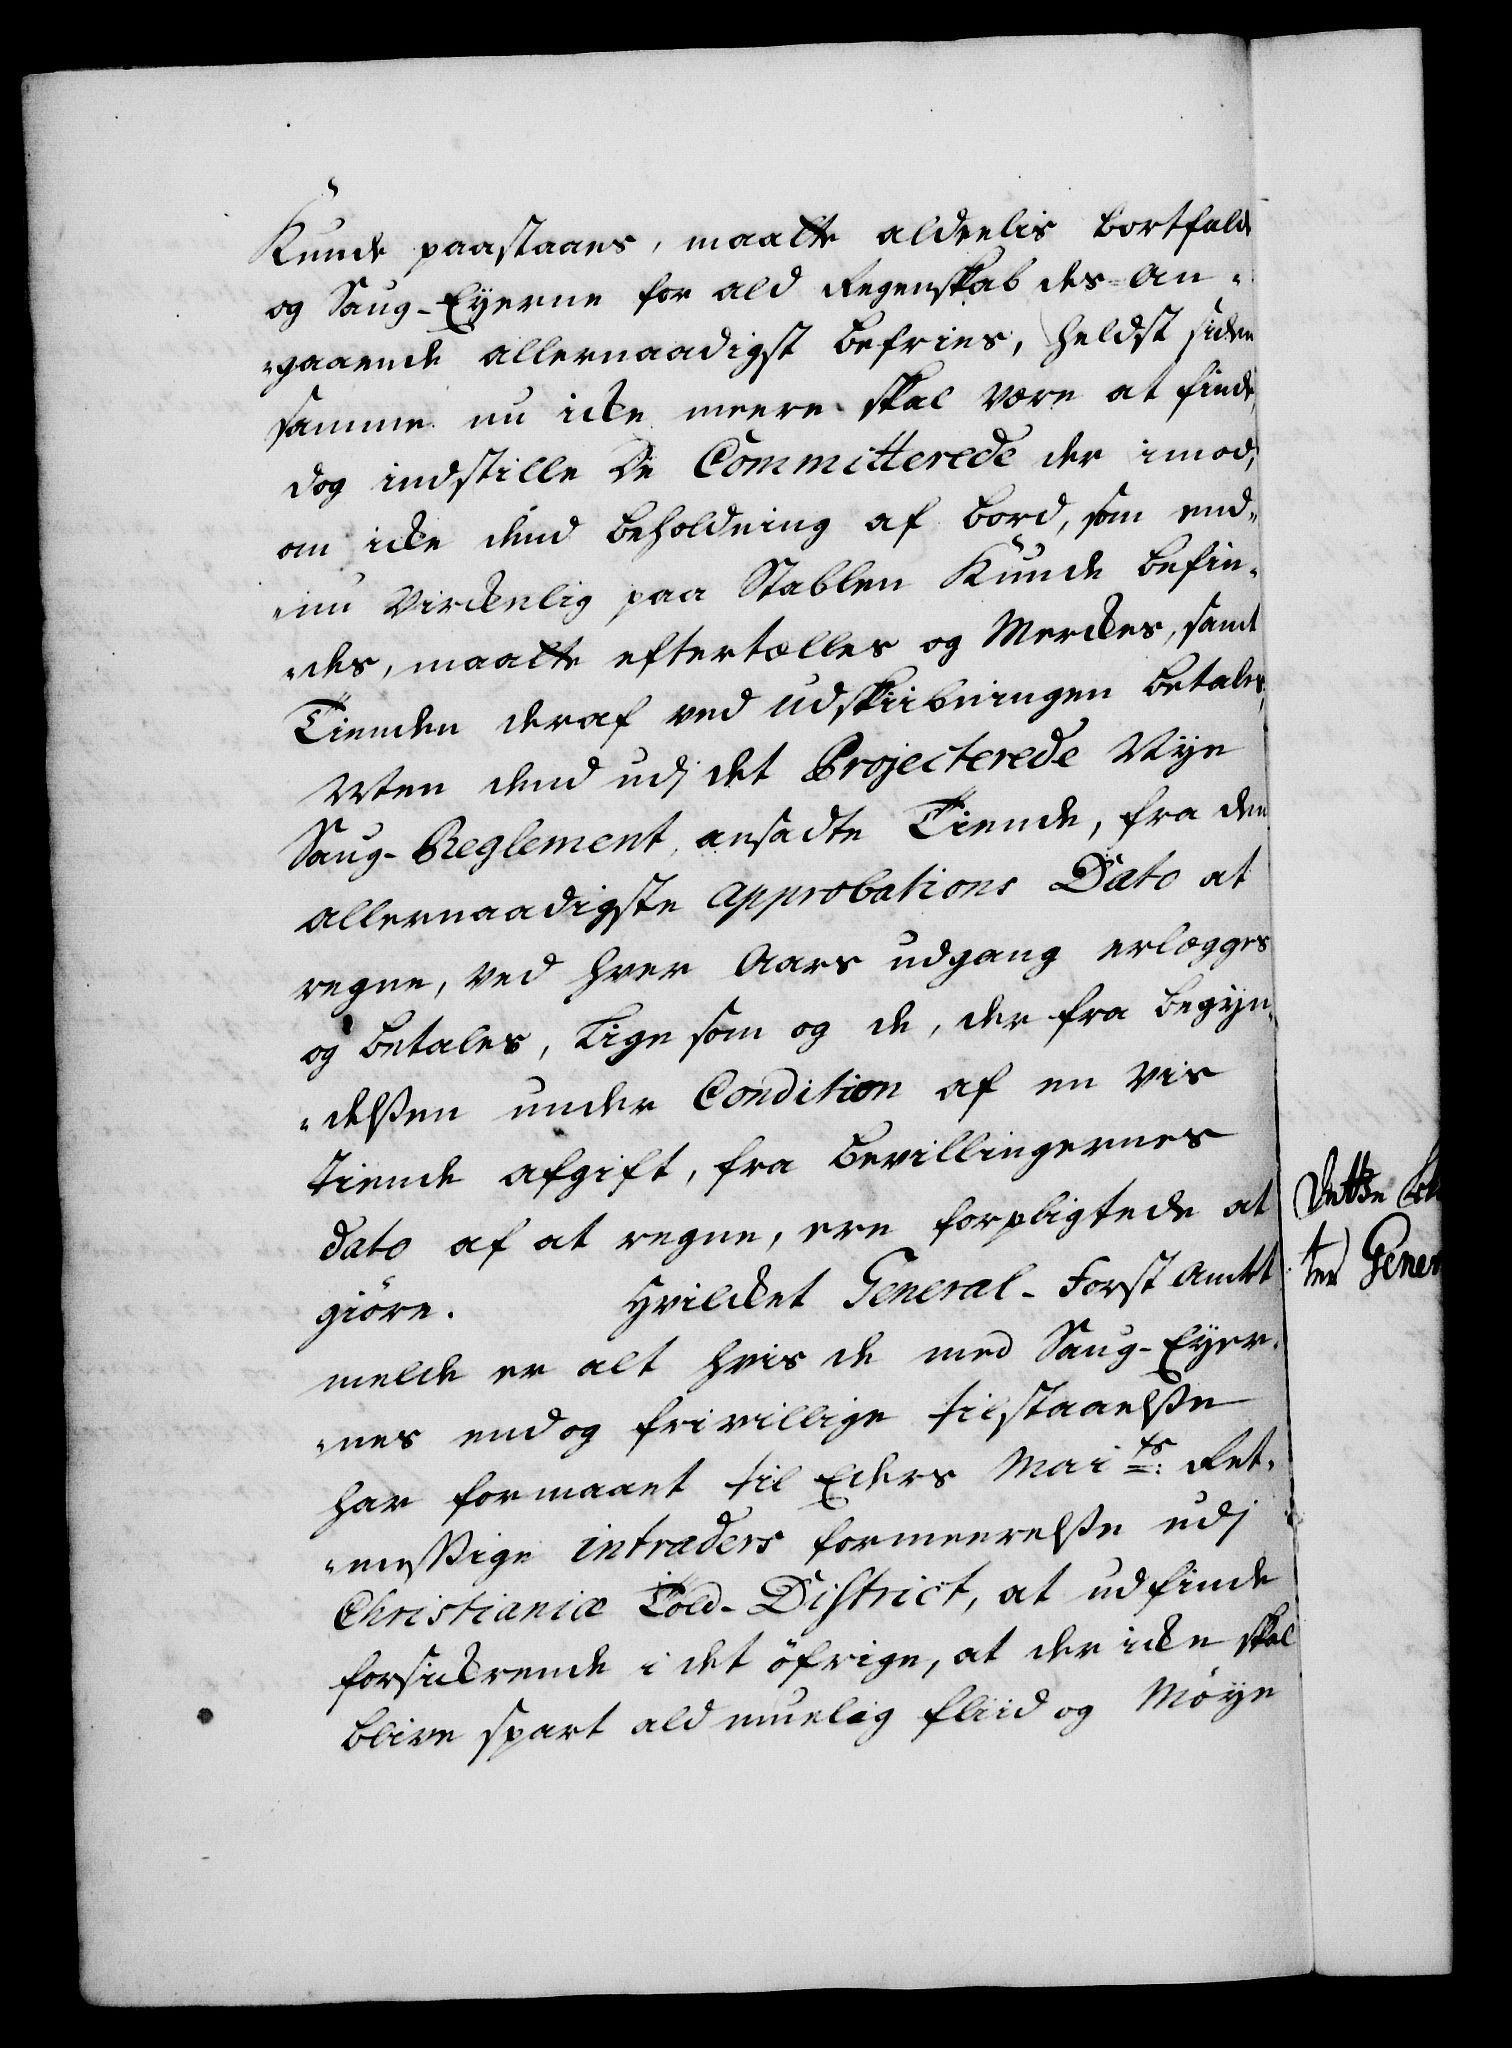 Kunde paastaaes, maatte aldeelis bortfald
og Saug-Eyerne for ald Regenskab des-an-
„gaaende allernaadigst befries, heldst siden
samme nu icke meere skal være at finde,
dog indstille De Committerede der imod,
om icke dend beholdning af bord, som end„
„nu Virckelig paa Stablen Kunde befin„
„des, maatte eftertælles og Merckes, samt
Tienden deraf ved udskibningen betales,
Men dend udj det Projecterede Nÿe
Saug-Reglement, ansadte Tiende, fra den
allernaadigste approbations Dato at
regne, ved hver Aars udgang erlægges
og betales, Lige som og de, der fra begÿn„
„delßen under Condition af en vis
tiende afgift, fra bevillingernes
dato af at regne, ere forpligtede at
giöre. Hvilcket General-Forst Amtet
melde er alt hvis de med Saug-Eÿer„
„nes endog frivillige tilstaaelße
har formaaet til Eders Mai ts: Ret„
„meßige intraders formeerelße udj
Christianiæ Told-District, at udfinde
forsickrende i det öfrige, at der icke skal
blive spart ald muelig fliid og Möÿe
Dette
ter Gener